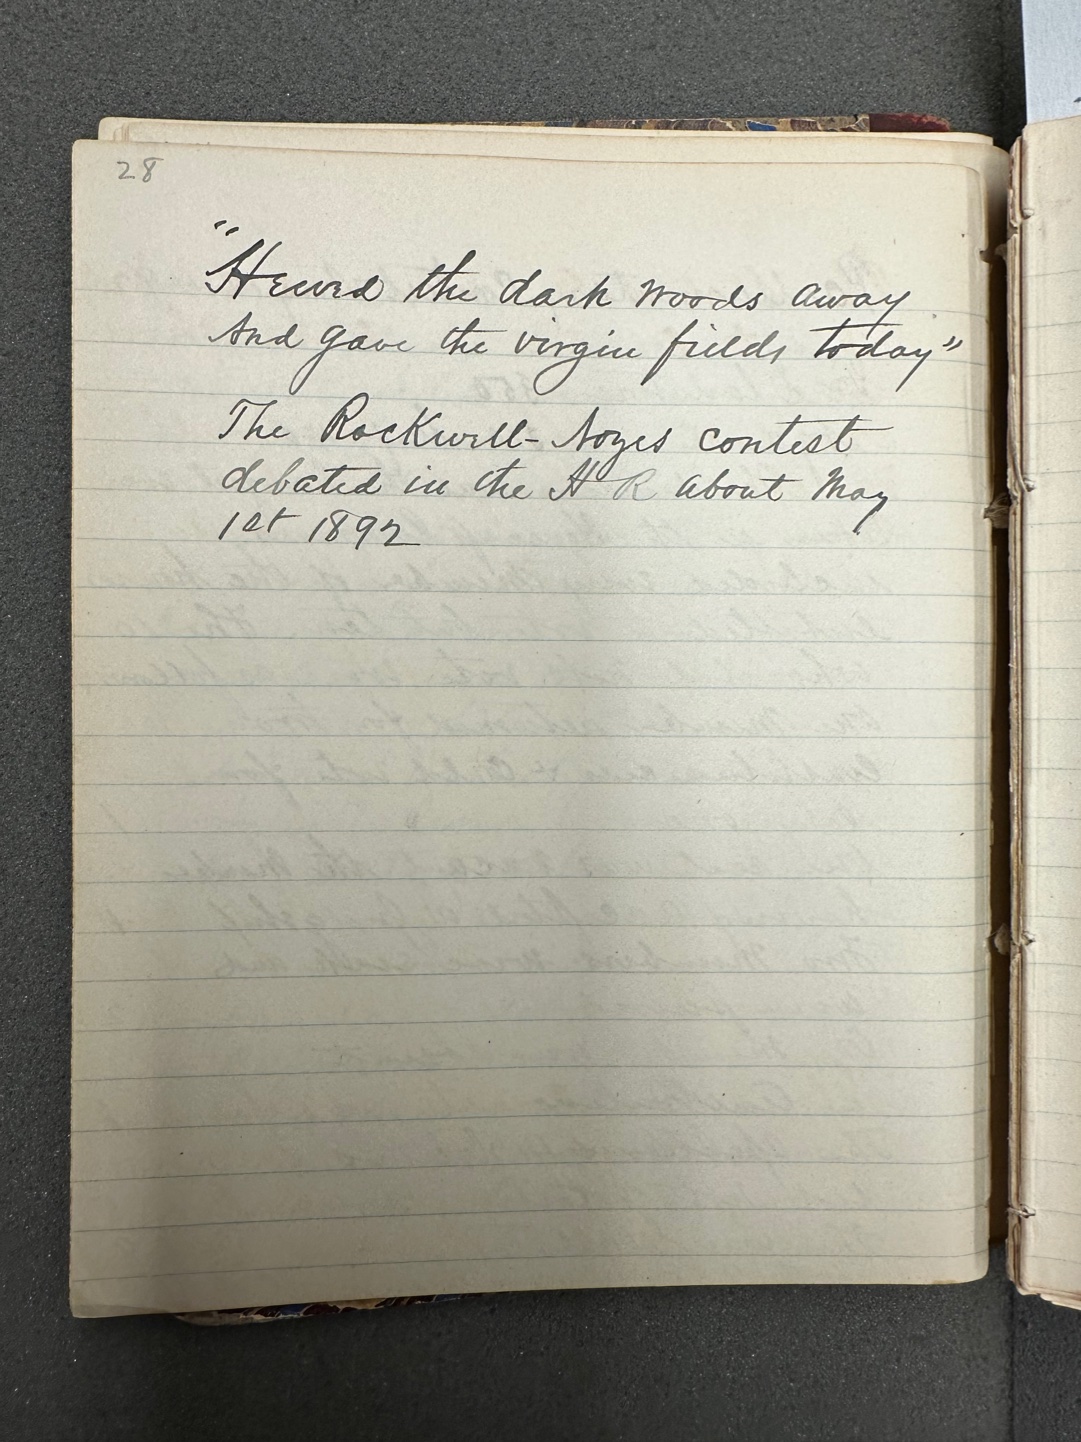 28
"Hewed the dark woods away
And gave the virgin fields today"
The Rockwell- Noyes contest
debated in the H R about May
1st 1892